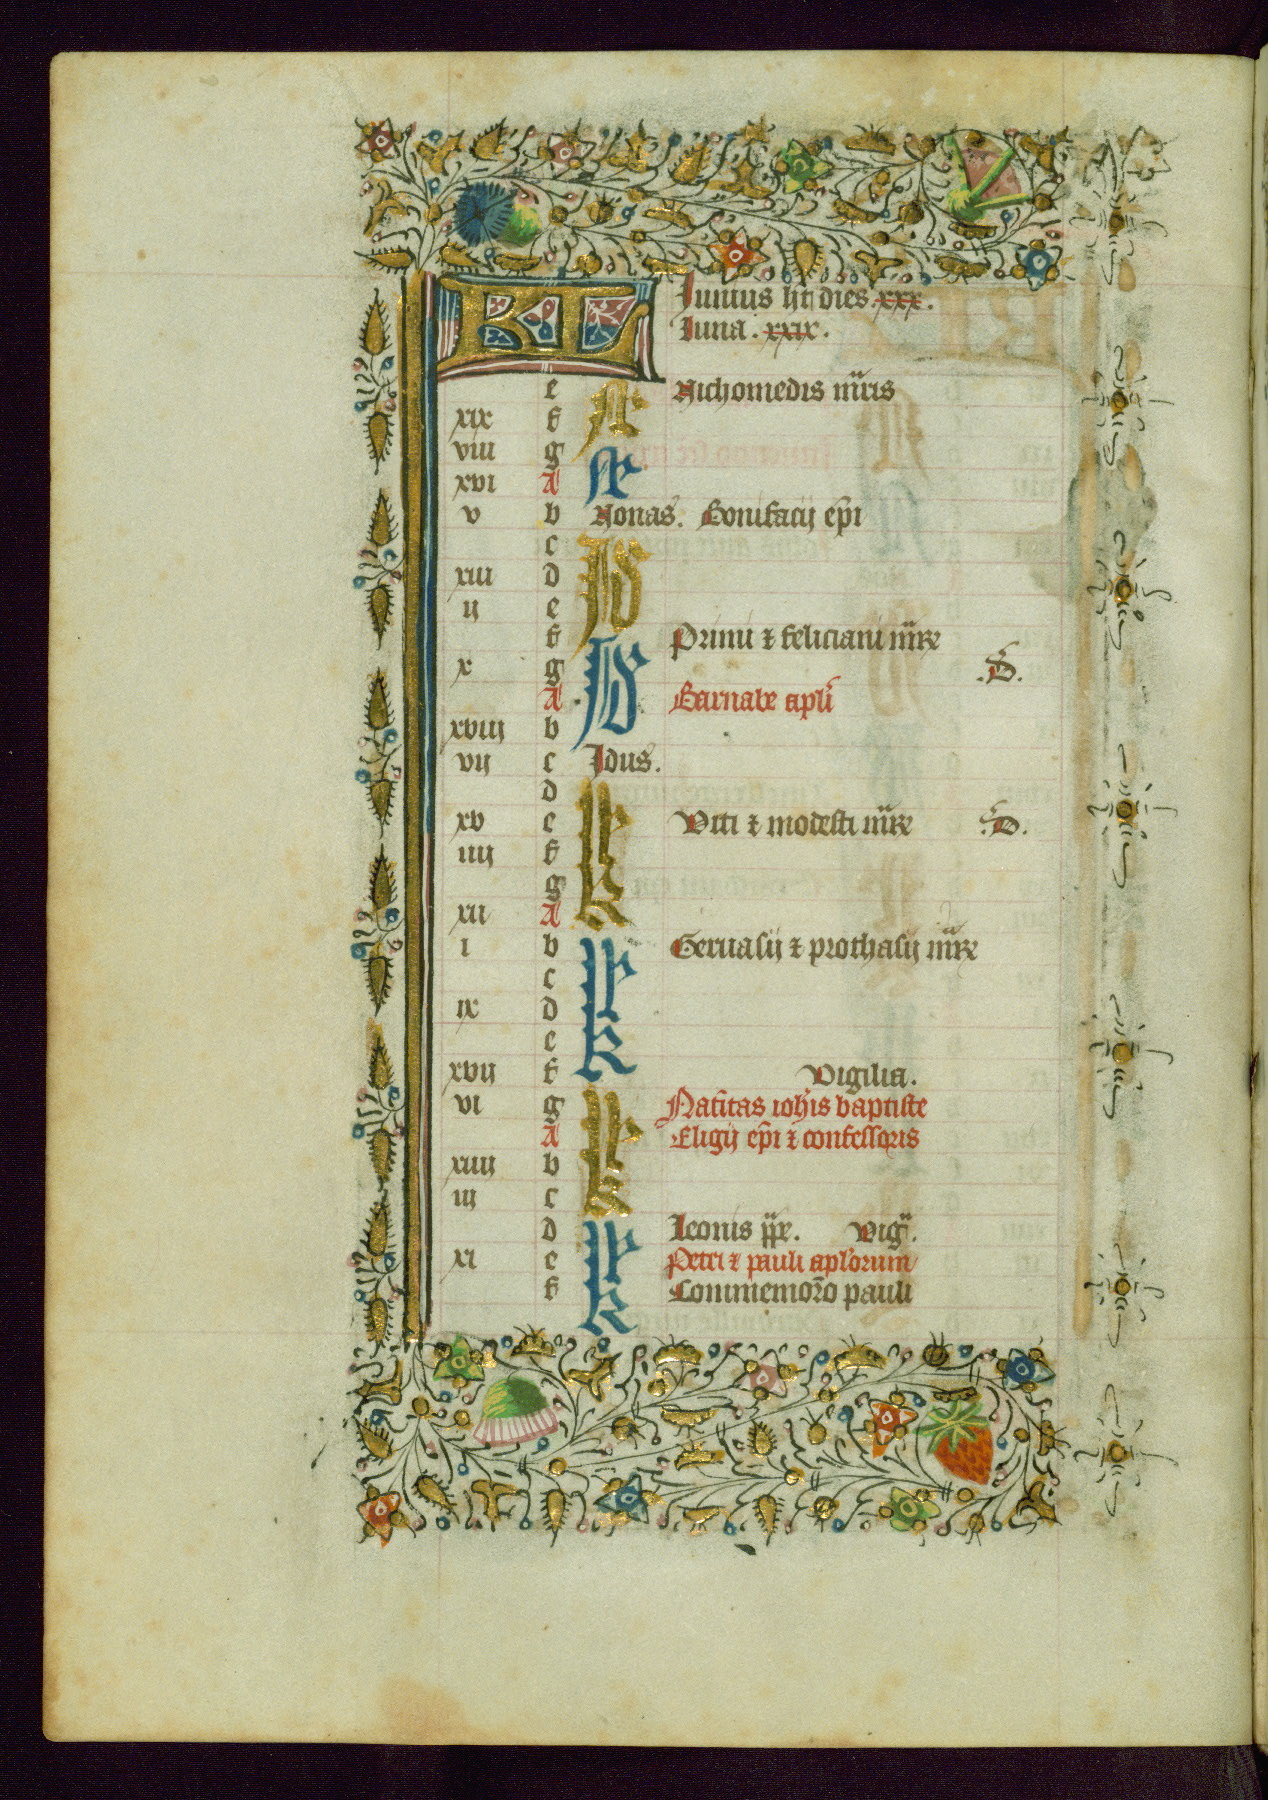 KL Iunius hꝫ dies .xxx.
luna . xxix.
e Nichomedis mr̄is
xix f N
viii g N
xvi A
v b Nonas. Bonifacij ep̄i
c Id
xiii d
ij e
f Primi ⁊ feliciani mr̄e
x g Id .S.
A Barnabe apl̄i
xviij b
vij c Idus.
d kl
xv e Viti ⁊ modesti mr̄e .S.
iiij f
g
xii A
i b kl Geruasij ⁊ prothasij mr̄e
c
ix d
e
xvij f Vigilia.
vi g kl Natītas ioh̄is baptiste
A Eligij ep̄i ⁊ confessoris
xiiij b
iij c
d kl Leonis pp̄e. viḡ.
xi e Petri ⁊ pauli apl̄orum
f Commemor̄o pauli